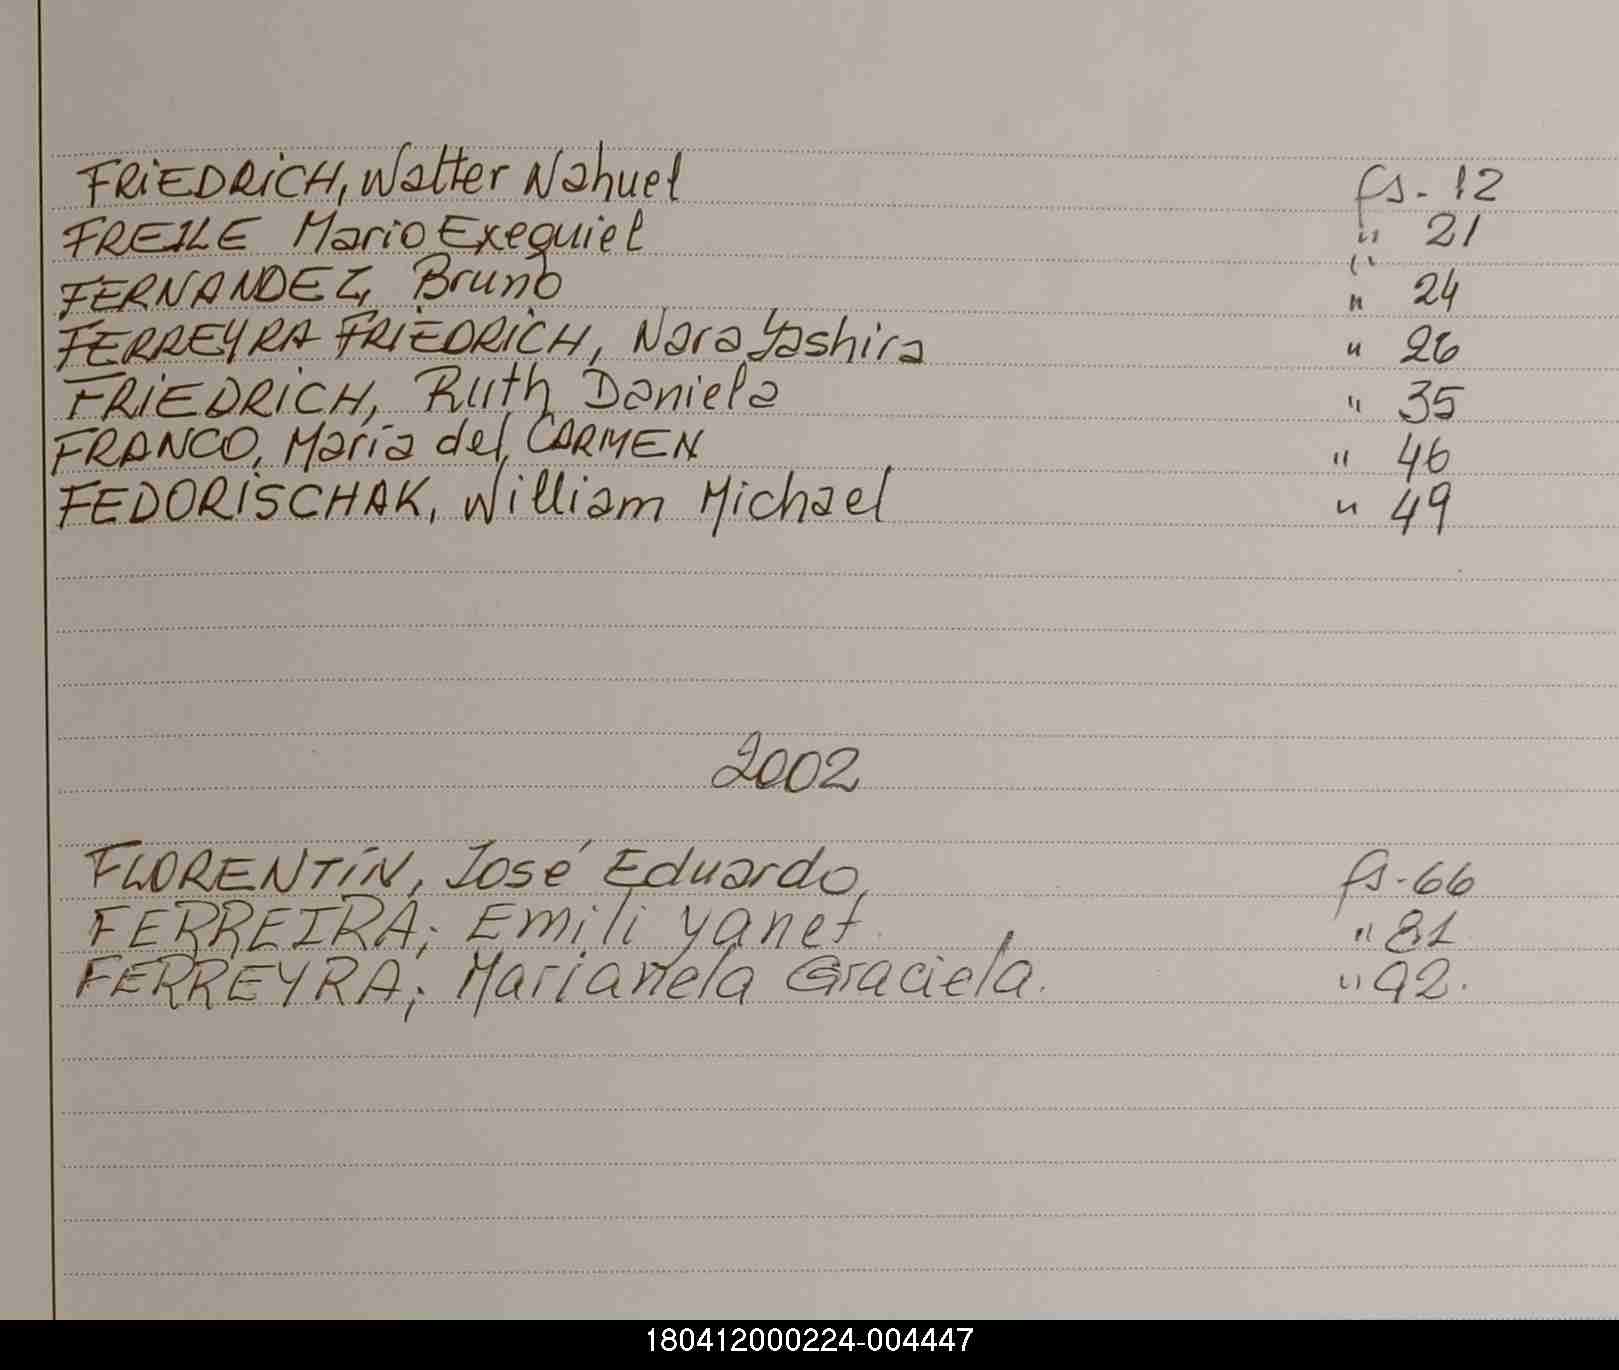 FRIEDRICH, Walter Nahuel fs. 12
FREILE Mario Exequiel " 21
FERNANDEZ, Bruno " 24
FERREYRA FRIEDRICH, Nara Yashira " 26
FRIEDRICH, Ruth Daniela " 35
FRANCO, María del CARMEN " 46
FEDORISCHAK, William Michael " 49
2002
FLORENTÍN, José Eduardo, fs. 66
FERREIRA; Emili Yanet. " 81
FERREYRA; Marianela Graciela. " 92.
180412000224-004447